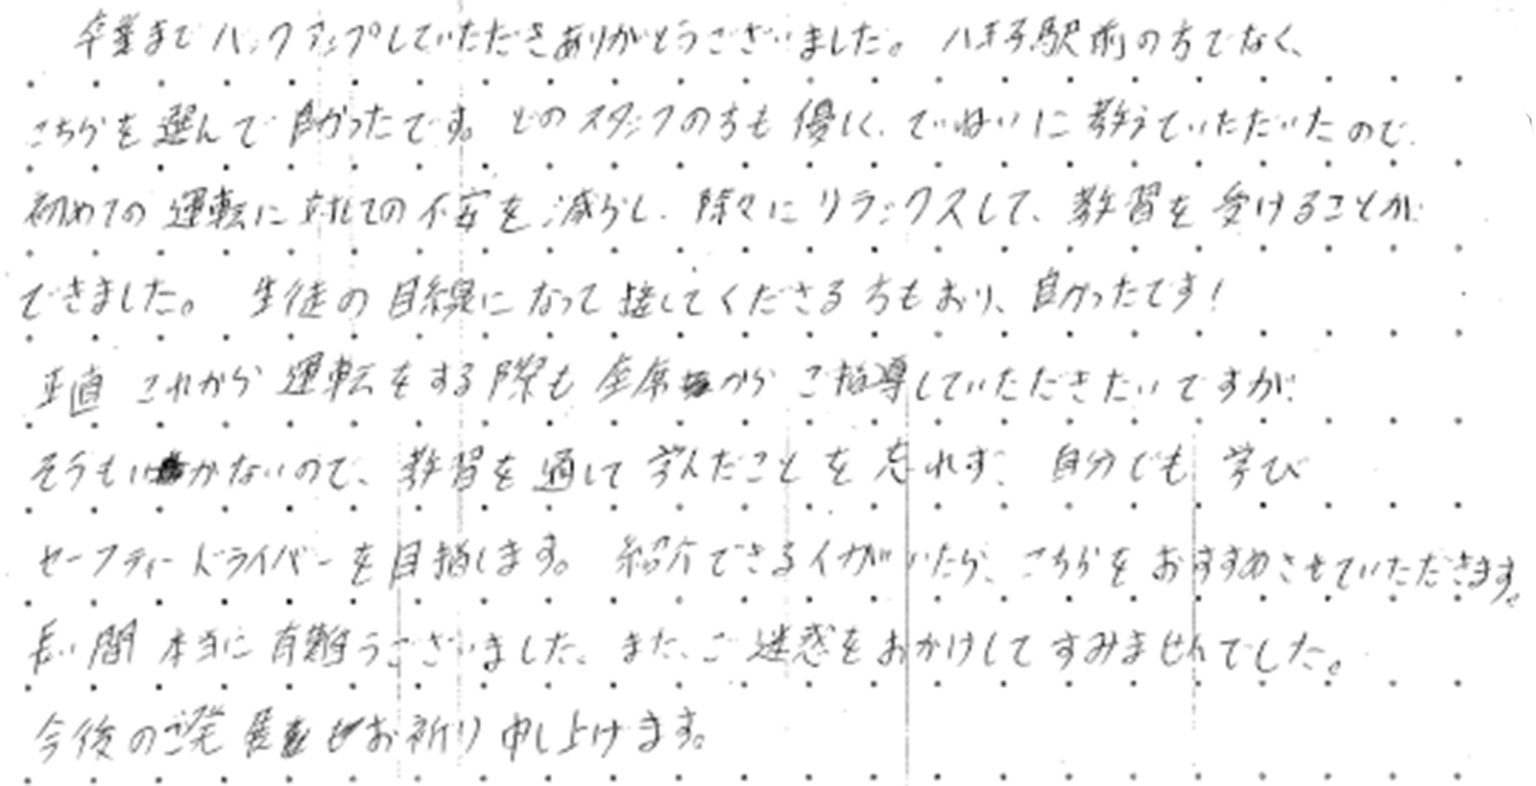 卒業までバックアップしていただきありがとうございました。八王子駅前の方でなく、
こちらを選んで良かったです。どのスタッフの方も優しく、ていねいに教えていただいたので
初めての運転に対しての不安を減らし、除々にリラックスして、教習を受けることが
できました。生徒の目線になって接してくださる方もおり、良かったです！
正直これから運転をする際も座席からご指導していただきたいですが
そうもいかないので、教習を通して学んだことを忘れず、自分でも学び
セーフティードライバーを目指します。紹介できる人がいたら、こちらをおすすめさせていただきます。
長い間本当に有難うございました。また、ご迷惑をおかけしてすみませんでした。
今後のご発展をお祈り申し上げます。